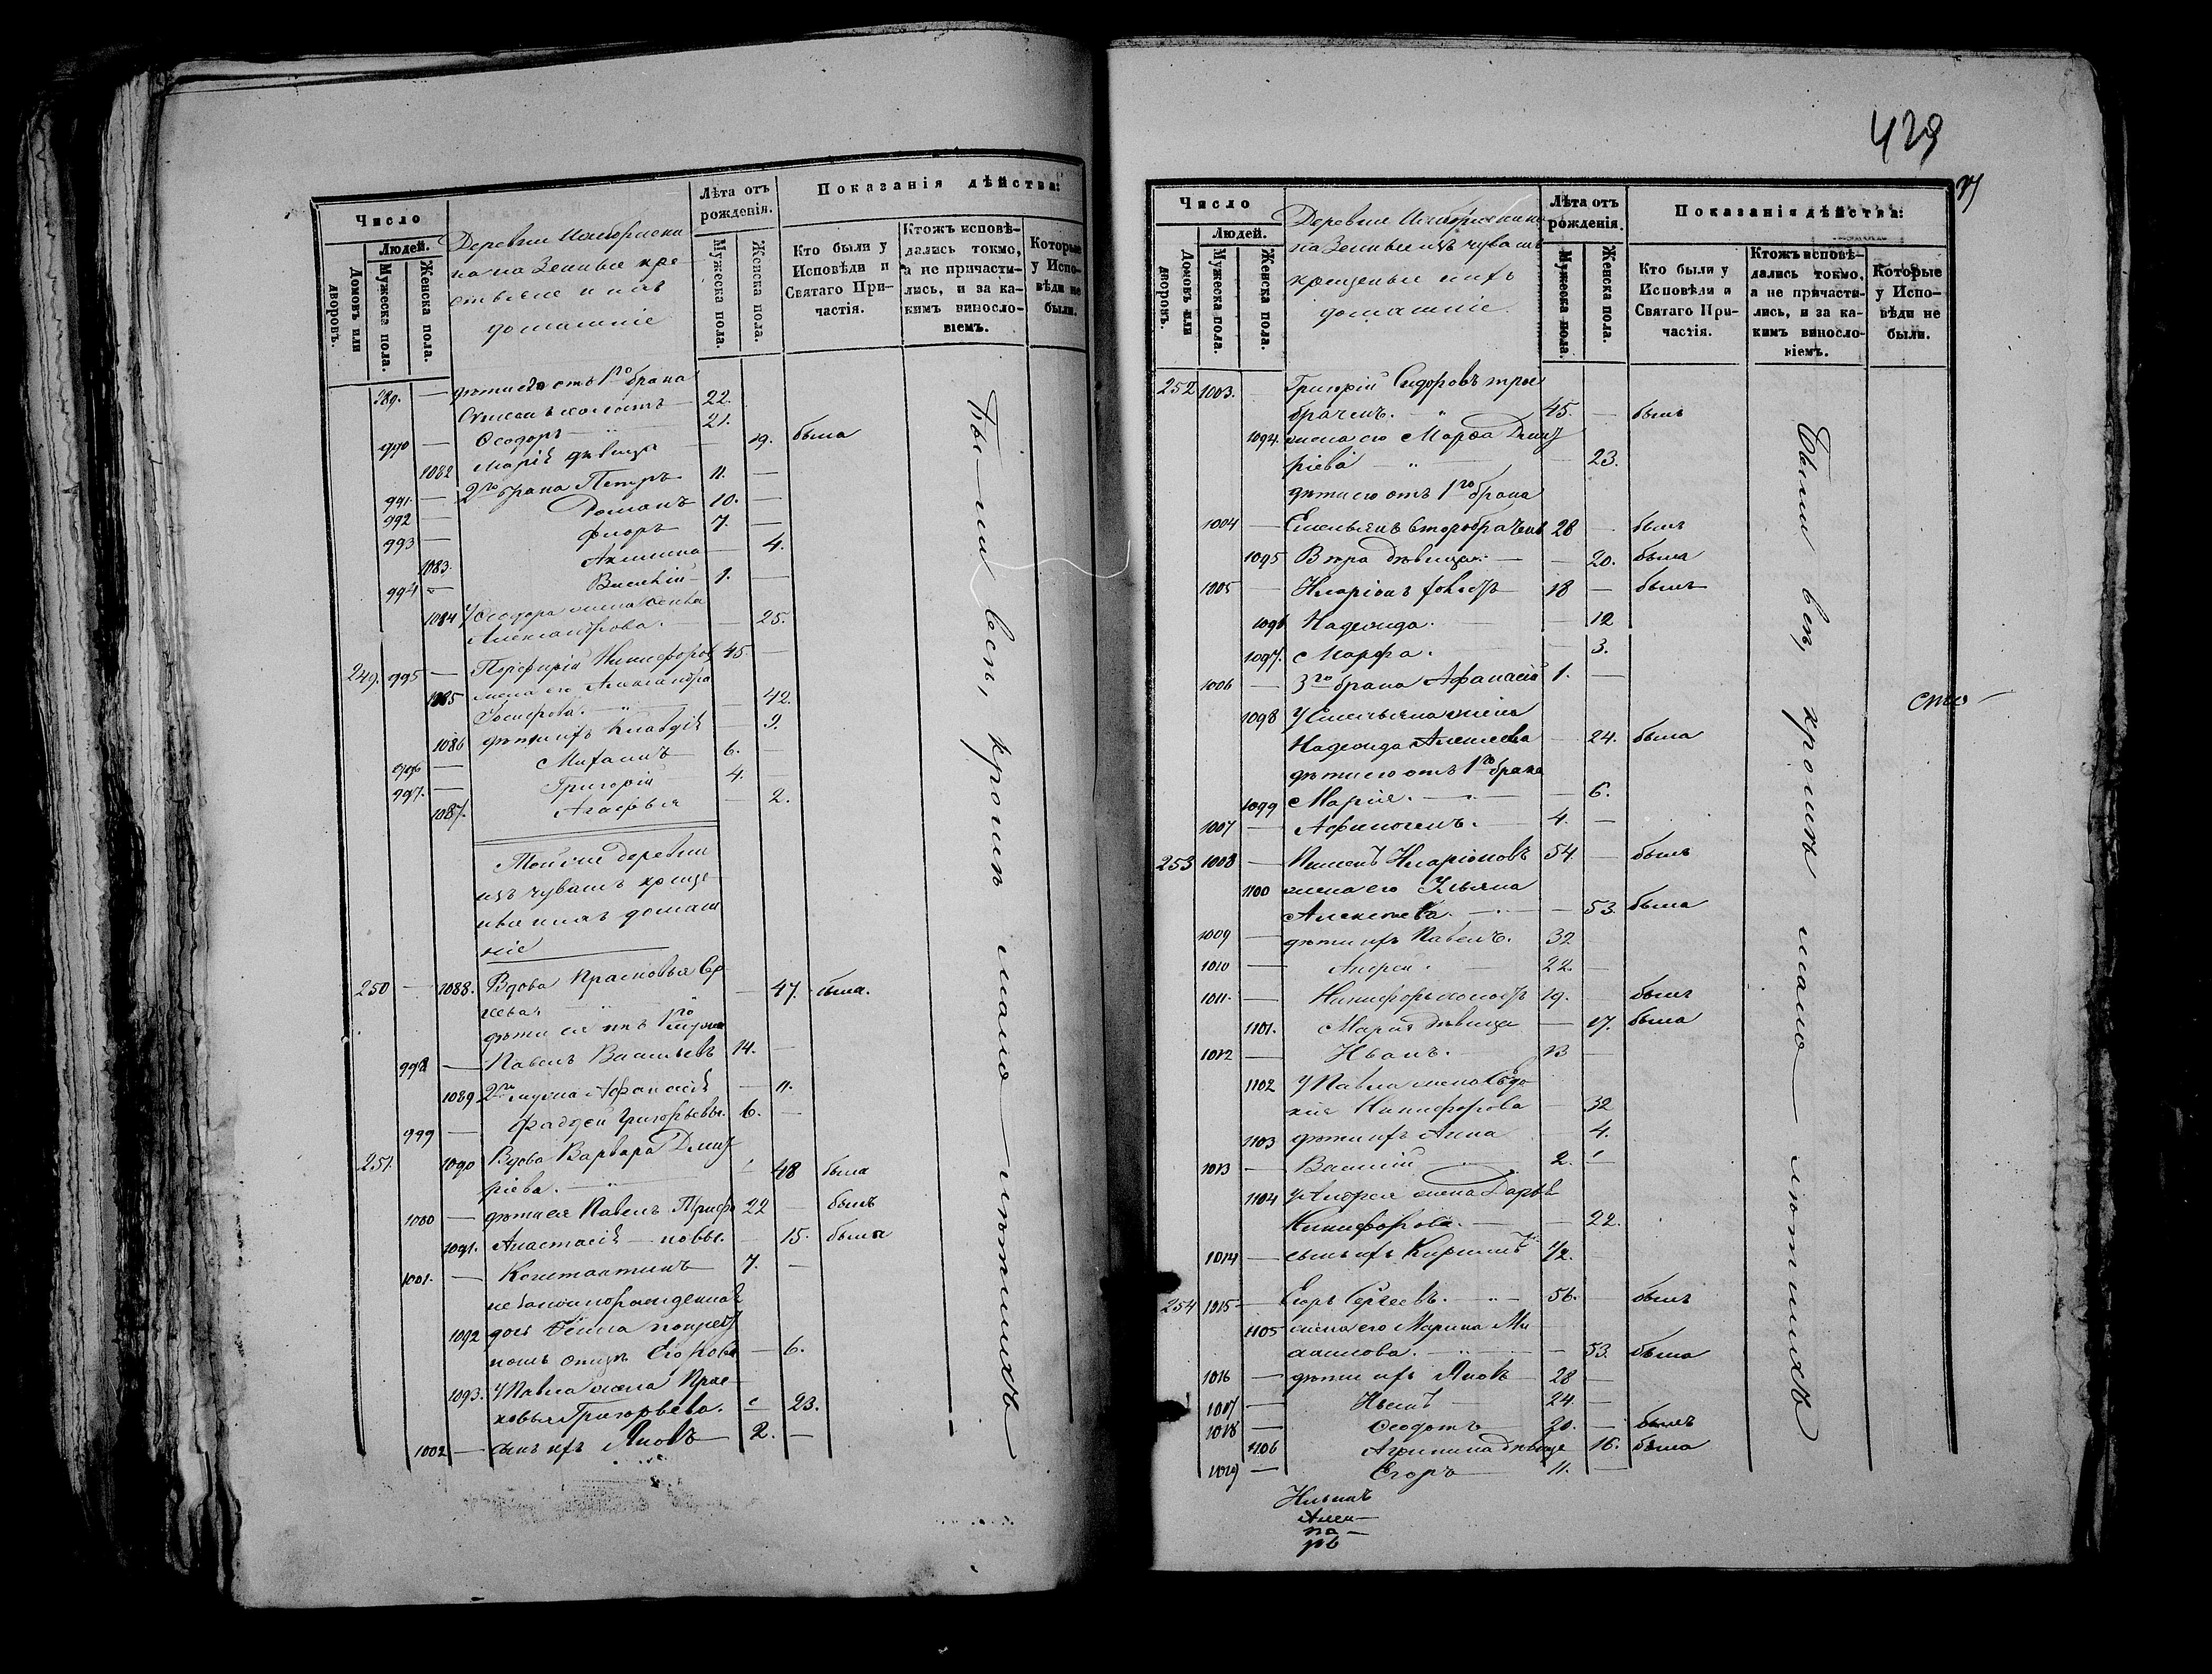 Число
Людей.
Домовъ или дворовъ.
Мужеска пола.
Женска пола.
Деревни
на
домашніе
Лѣта отъ рожденія.
Мужеска пола.
Женска пола.
Показанія дѣйства:
Кто были у Исповѣди и Святаго Причастія.
Ктожъ исповѣдались токмо, а не причастились, и за какимъ винословіемъ.
Которые у Исповѣди не были.
989. — дѣти его отъ 1го брака
22.
990 — Ѳеодоръ 21.
1082 Марія дѣвица — 19. была
991. — 2го брака Петръ 11. —
992 — Романъ 10. —
993 — Флоръ 7. —
1083. Акилина — 4.
994 — Василій 1. —
1084 У Ѳеодора жена
Александрова. — 25.
249. 995 — Порфирій Никифоровъ 45 —
1085 жена его Александра
42.
1086 дѣти ихъ Клавдія — 9.
996 — Михаилъ 6. —
997. — Григорій 4. —
1087. Агафья — 2.
Той же деревни
изъ чувашъ креще-
домаш
ніе
250 — 1088. Вдова Прасковья Сер
геева. — 47. была.
дѣти ея отъ 1го мужа
998 — Павелъ Васильевъ 14. —
1089 2го мужа — 11.
999 — Фаддей Григорьевы. 6. —
251. 1090 Вдова Варвара Дмит
ріева. — 48 была
1000 — дѣти ея Павелъ 22 — былъ
1091. Анастасія — 15. была
1001. — Константинъ 7. —
незаконнорожденная
1092 дочь
Егорова — 6.
1093. У Павла жена Прас
ковья Григорьева. 23.
1002 — сынъ ихъ Яковъ 2. —
Были всѣ, кромѣ мало-лѣтнихъ
429
Число
Людей.
Домовъ или дворовъ.
Мужеска пола.
Женска пола.
Деревни
на изъ чувашъ
крещеные ихъ
домашніе.
Лѣта отъ рожденія.
Мужеска пола.
Женска пола.
Показанія дѣйства:
Кто были у Исповѣди и Святаго Причастія.
Ктожъ исповѣдались токмо, а не причастились, и за какимъ винословіемъ.
Которые у Исповѣди не были.
252 1003. Григорій Сидоровъ трое
браченъ. 45. — былъ
1094. жена его Марѳа Дмит
ріева — 23.
дѣти его отъ 1го брака
1004 — Емельянъ второбраченъ 28 — былъ
1095 Вѣра дѣвица — 20. была
1005 — Иларіонъ холостъ 18 — былъ
1096 Надежда. — 12
1097. Марѳа. — 3.
1006 — 3го брака Афанасій 1. —
1098 У Емельяна жена
Надежда Алексеева — 24. была
дѣти его отъ 1го брака
1099 Марія. — 6.
1007 — Афиногенъ. 4. —
253 1008 — Пименъ Иларіоновъ 54. — былъ
1100 жена его Ульяна
Алексеева. — 53. была
1009 — дѣти ихъ Павелъ. 32
1010 — Андрей. 22. —
1011. — Никифоръ холостъ 19. — былъ
1101. Марія дѣвица — 17. была
1012 — Иванъ. 13 —
1102 У Павла жена Евдо
кия Никифорова — 32
1103 дѣти ихъ Анна — 4.
1013 — Василій 2. —
1104 У Андрея жена Дарья
Никифорова. — 22.
1014 — сынъ ихъ Кириллъ 1/2. —
254 1015 — Егоръ Сергеевъ. 56. — былъ
1105 жена его Марина Ми
хаилова. — 53. была
1016 — дѣти ихъ Яковъ 28 —
1017 — 24. —
1018 — Ѳеодотъ 20. — былъ
1106 Агрипина дѣвица 16. была
1019 — Егоръ 11. —
Были всѣ, кромѣ мало-лѣтнихъ